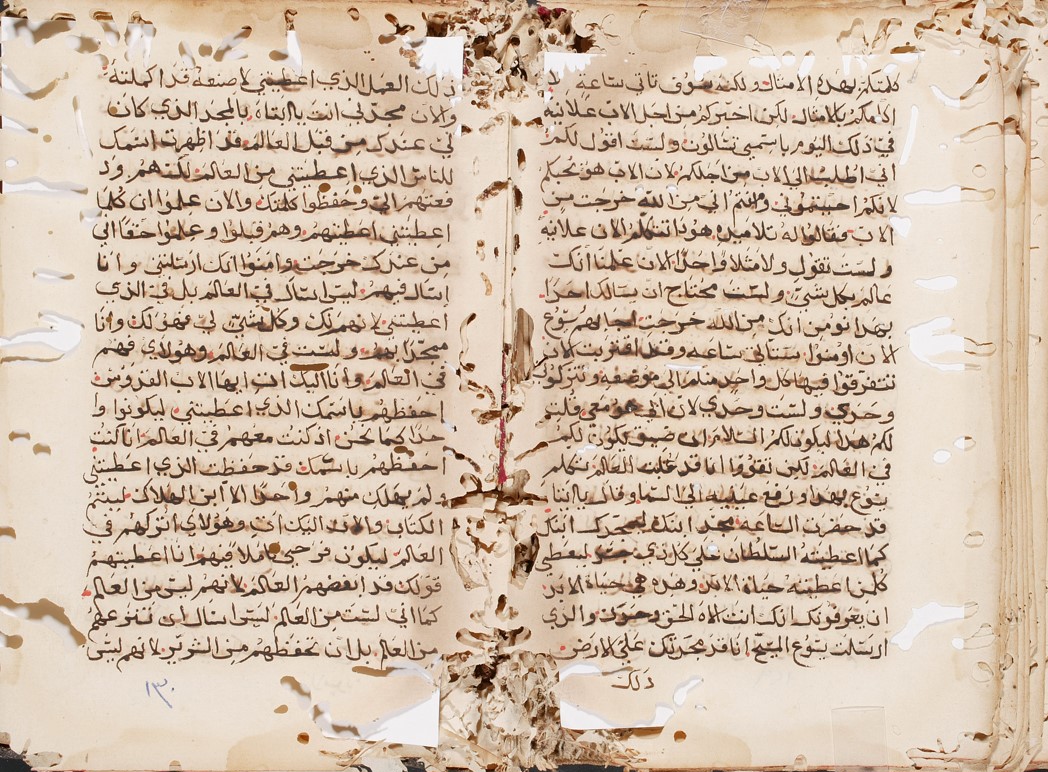 كلمتكم بهذه الامثال ولكنه سوف تاتي ساعة لا
اذ اكلمكم بالامثال لكن اخبركم من اجل الاب علانيه
في ذلك اليوم باسمي تسالون ولست اقول لكم
اني اطلب الى الاب من اجلكم لان الاب هو يحبكم
لانكم احببتموني وامنتم اني من الله خرجت من
الاب فقالوا له تلاميذه هوذا تتكلم الان علانيه
ولست تقول ولا مثلا واحدا الان علمنا انك
عالم بكل شي ولست محتاج ان يسالك احدا
بهذا نومن انك من الله خرجت اجابهم يسوع
الان اومنوا ستاتي ساعه وقد اقتربت الان
تتفرقوا فيها كل واحد منكم الى موضعه وتتركوني
وحدي ولست وحدي لان ابي هو معي قلت
لكم هذا ليكون لكم السلام في ضيق تكون لكم
في العالم لكن تقووا انا قد غلبت العالم تكلم
يسوع بهذا ورفع عينيه الى السما وقال يا ابتا
قد حضرت الساعه مجد ابنك ليمجدك ابنك
كما اعطيته السلطان على كل ذي جسد ليعطي
كل من اعطيته حياة الابد وهذه هي حياة الابد
ان يعرفونك انك انت الاه الحق وحدك والذي
ارسلت يسوع المسيح انا قد مجدتك على الارض
ذلك
ذلك العمل الذي اعطيتني لاصنعه قد اكملته
والان مجدني انت يا ابتاه بالمجد الذي كان
لي عندك من قبل العالم قد اظهرت اسمك
للناس الذي اعطيتني من العالم لك هم ود
فعتهم الي وحفظوا كلمتك والان علموا ان كلما
اعطيتني اعطيتهم وهم قبلوا وعلموا حقا اني
من عندك خرجت وامنوا انك ارسلتني وانا
اسال فيهم ليس اسال في العالم بل في الذي
اعطيتني لانهم لك وكل شي لي فهو لك وانا
ممجدا بهم ولست في العالم وهولاي فهم
في العالم وانا اليك ات ايها الاب القدوس
احفظهم باسمك الذي اعطيتني ليكونوا وا
حدا كما نحن اذ كنت معهم في العالم انا كنت
احفظهم باسمك قد حفظت الذي اعطيتني
ولم يهلك منهم واحدا الا ابن الهلاك ليتم
الكتاب والان اليك ات وهولاي اتركهم في
العالم ليكون فرحي كاملا فيهم انا اعطيتهم
قولك قد ابغضهم العالم لانهم ليس من العالم
كما اني لست من العالم ليس اسال ان تنزعهم
من العالم بل ان تحفظهم من الشرير لانهم ليس
١٣٠